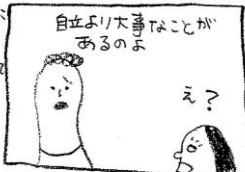 自立より大事なことが
あるのよ
え？